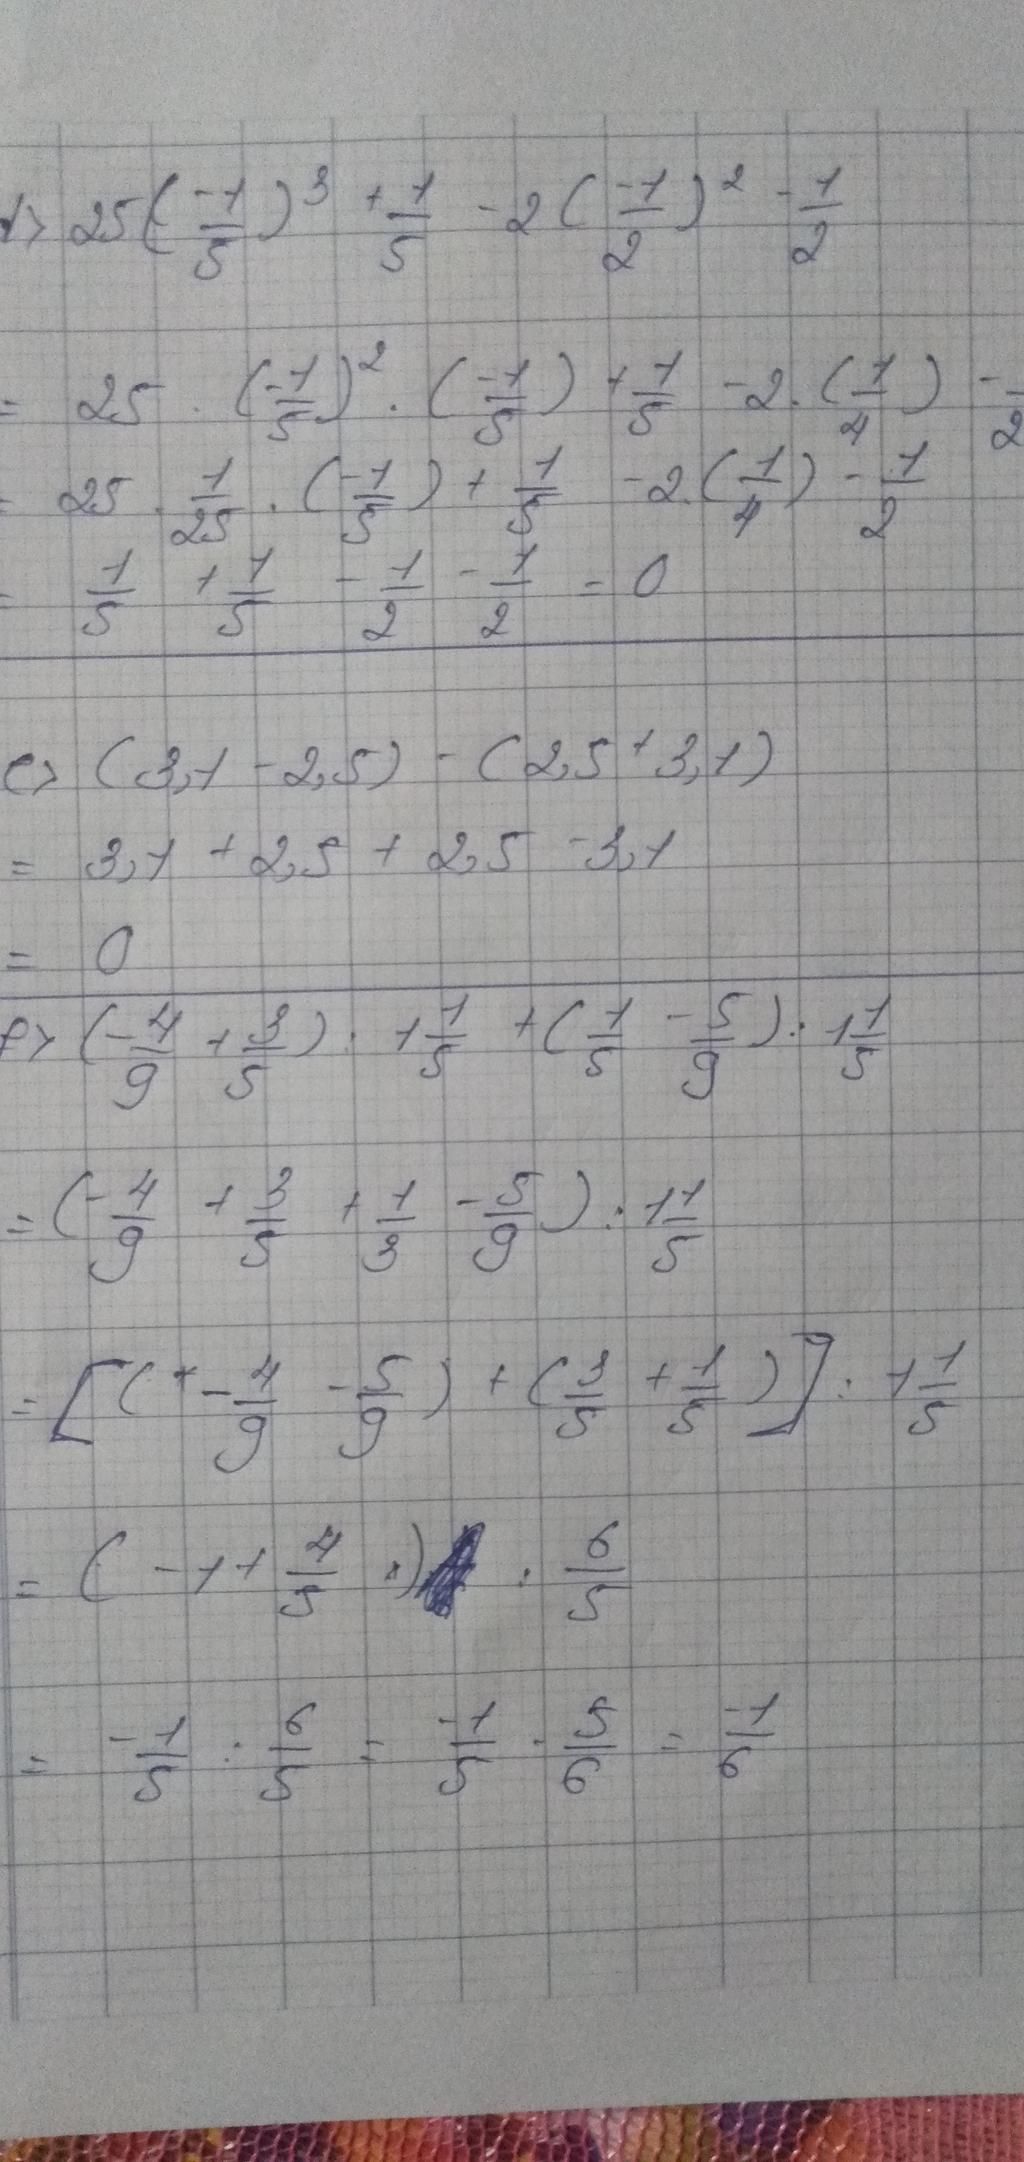 d> 25(-1/5)³ + 1/5 - 2(-1/2)² - 1/2
= 25 . (-1/5)² . (-1/5) + 1/5 - 2.(1/4) - /2
= 25 . 1/25 . (-1/5) + 1/5 - 2.(1/4) - 1/2
= 1/5 + 1/5 - 1/2 - 1/2 = 0
e> (3,1 - 2,5) - (2,5 + 3,1)
= 3,1 + 2,5 + 2,5 - 3,1
= 0
f> (-4/9 + 3/5) : 1 1/5 + (1/5 - 5/9) : 1 1/5
= (-4/9 + 3/5 + 1/3 - 5/9) : 1 1/5
= [(+ -4/9 - 5/9) + (3/5 + 1/5)] : 1 1/5
= (-1 + 4/5) : 6/5
= -1/5 : 6/5 = -1/5 . 5/6 = -1/6